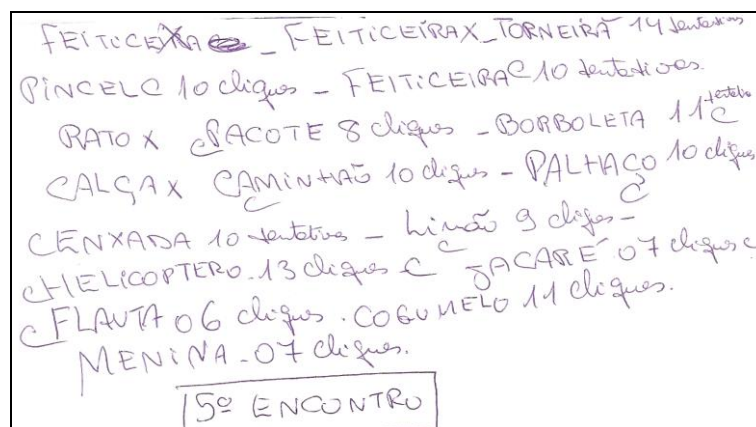 FEITICEIRA - FEITICEIRA X - TORNEIRA 14 tentativas
PINCEL C 10 cliques - FEITICEIRA C 10 tentativas.
RATO X C PACOTE 8 cliques - BORBOLETA 11 C
CALÇA X CAMINHÃO 10 cliques - PALHAÇO 10 cliques
C C
C ENXADA 10 tentativas - Limão 9 cliques -
C
C HELICOPTERO. 13 cliques C JACARÉ 07 cliques C
C FLAUTA 06 cliques. COGUMELO 11 cliques.
MENINA - 07 cliques.
15º ENCONTRO